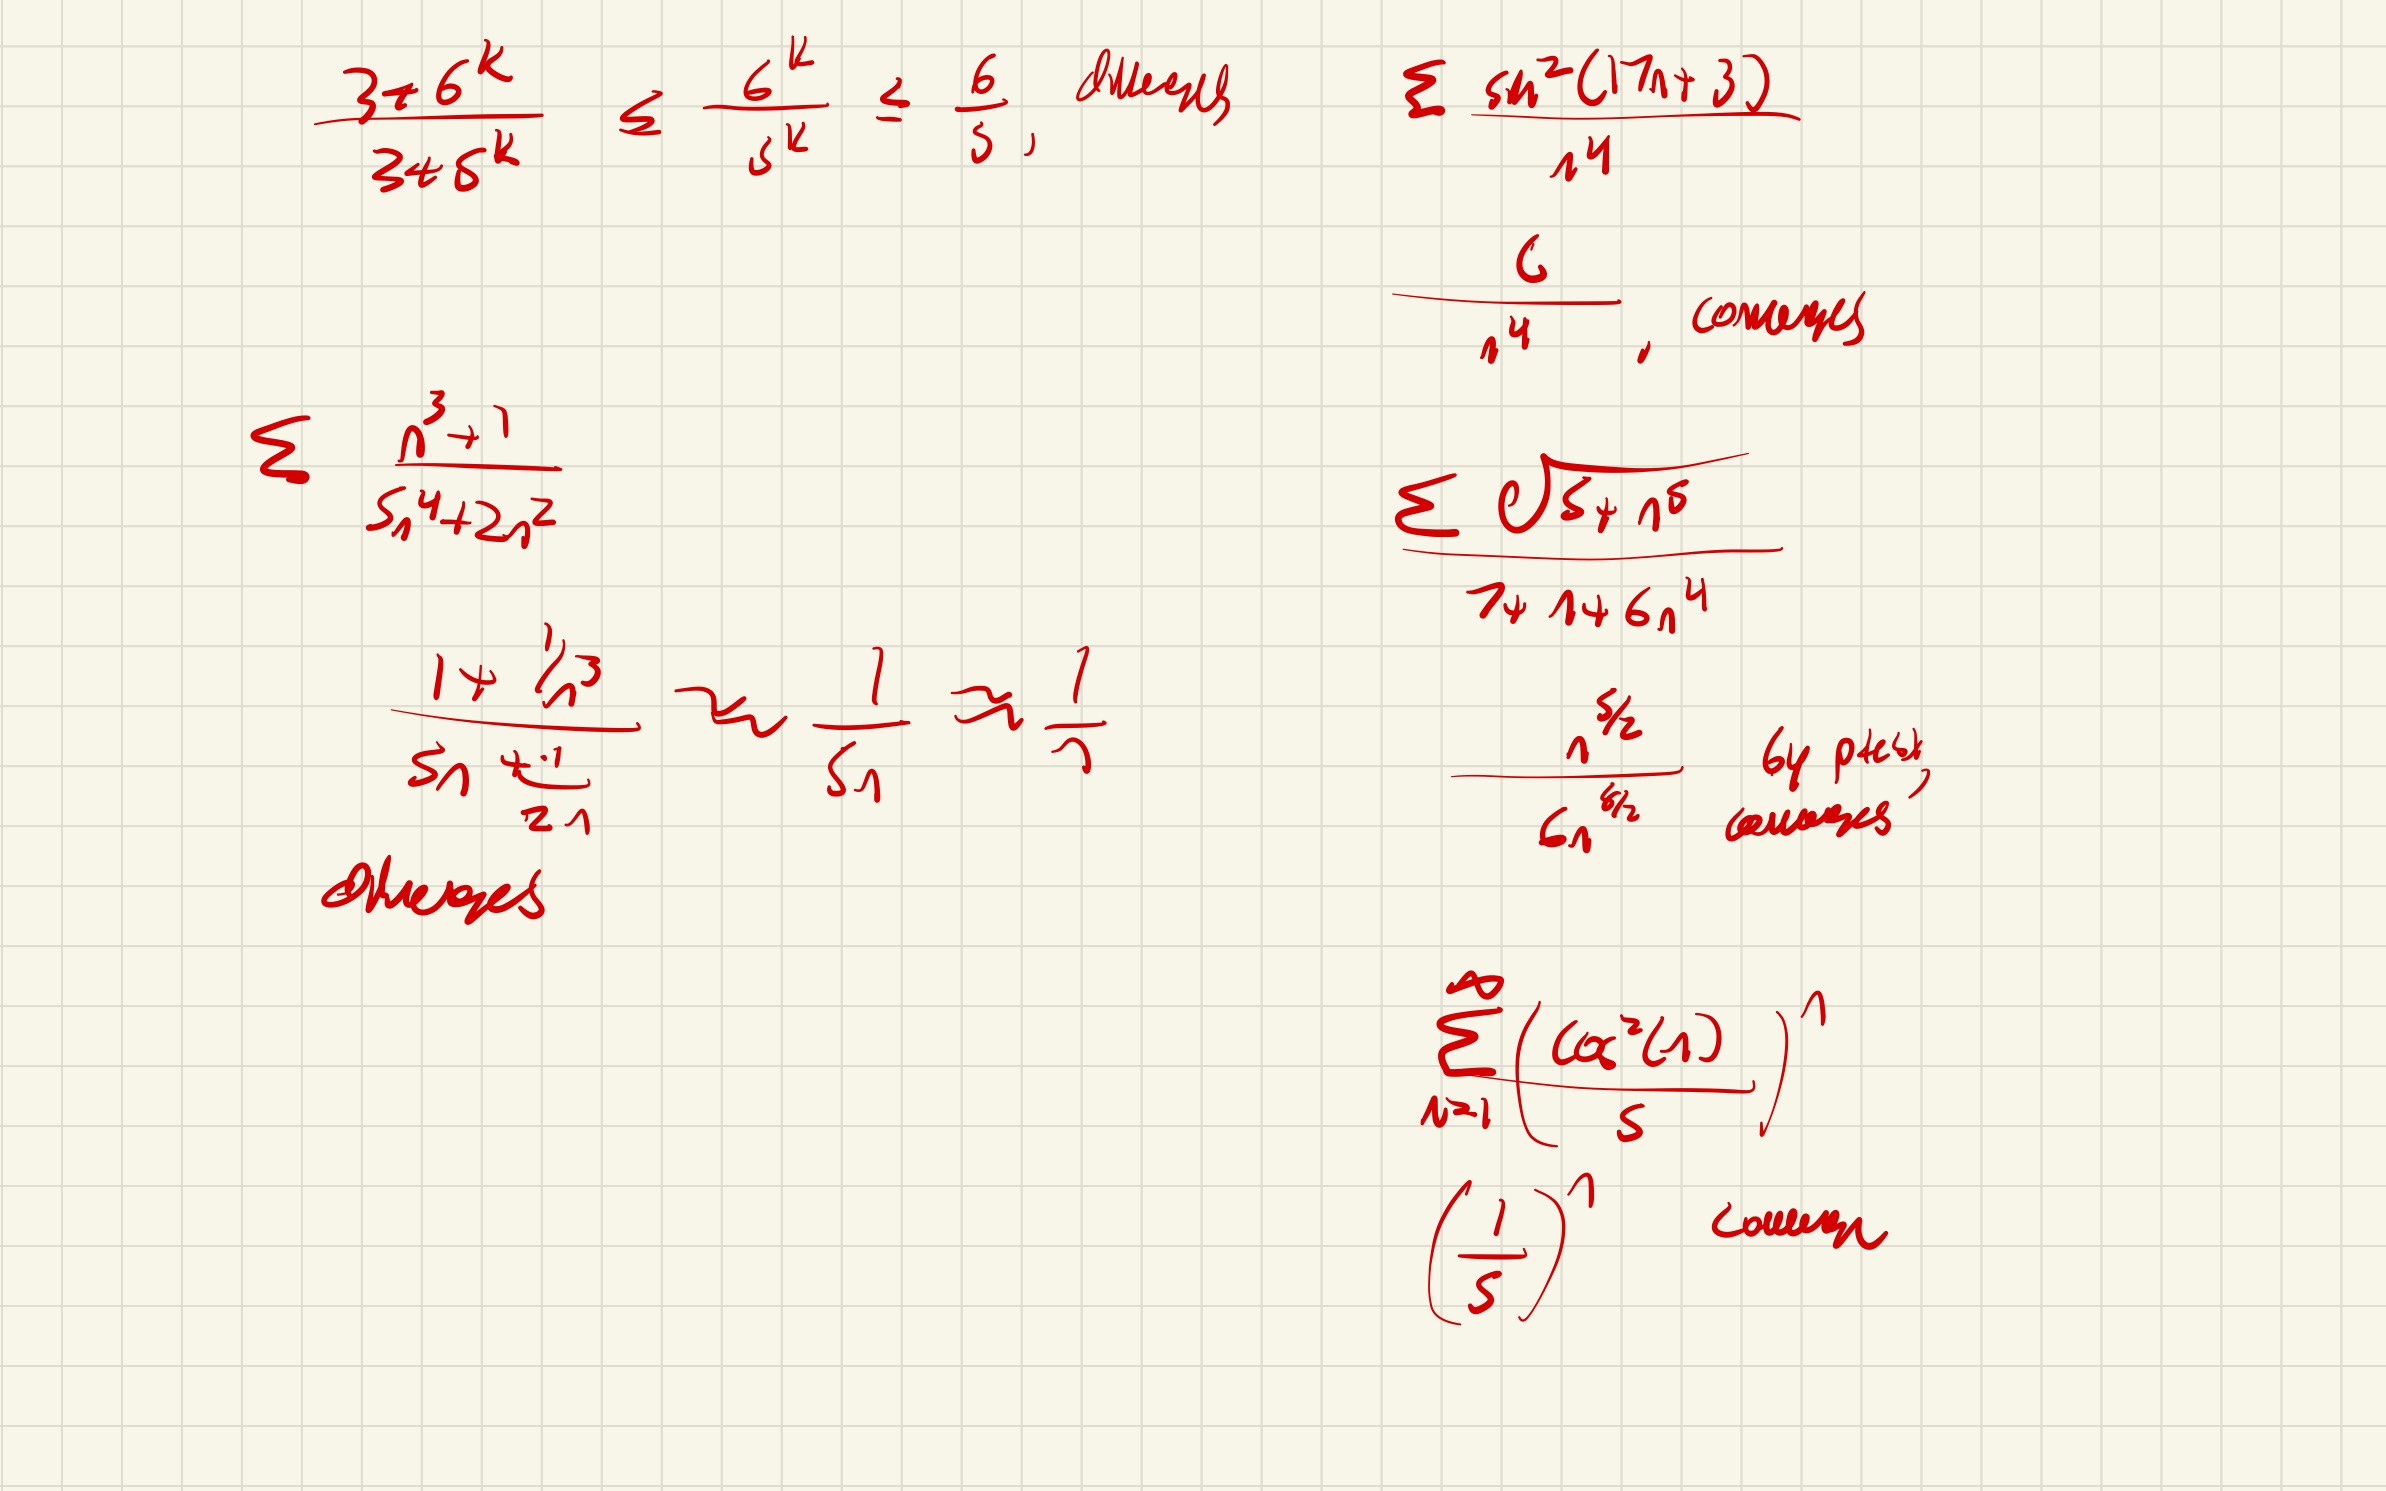 (3 + 6^k)/(3 + 5^k) ≤ 6^k/5^k ≤ 6/5, diverges
Σ (n^3 + 1)/(5n^4 + 2n^2)
(1 + 1/n^3)/(5n + 1/(2n)) ≈ 1/(5n) ≈ 1/n
diverges
Σ sin^2(17n + 3)/n^4
6/n^4, converges
Σ √(5 + n^5)/(7 + n + 6n^4)
n^(5/2)/(6n^(8/2)) by p test, converges
Σ_{n=1}^∞ (cos^2(n)/5)^n
(1/5)^n